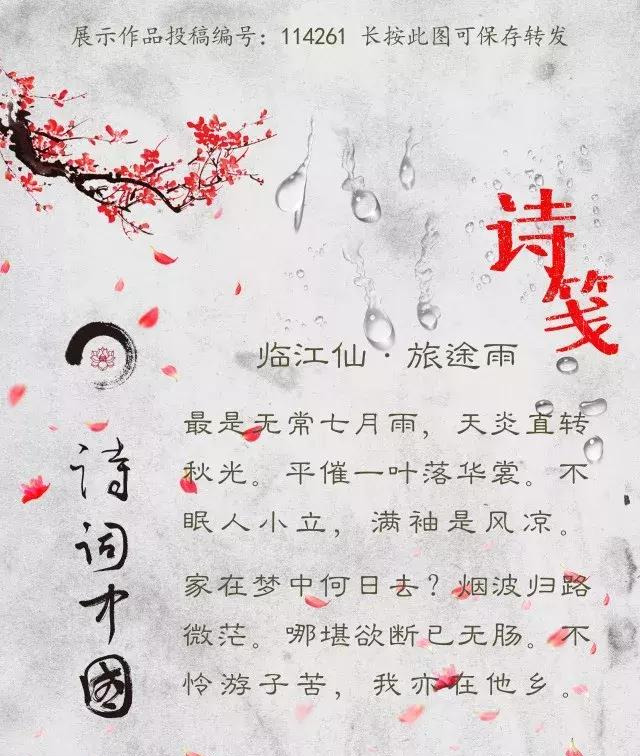 展示作品投稿编号：114261 长按此图可保存转发
诗笺
临江仙·旅途雨
最是无常七月雨，天炎直转
秋光。平催一叶落华裳。不
眠人小立，满袖是风凉。
家在梦中何日去？烟波归路
微茫。哪堪欲断已无肠。不
怜游子苦，我亦在他乡。
诗词中国